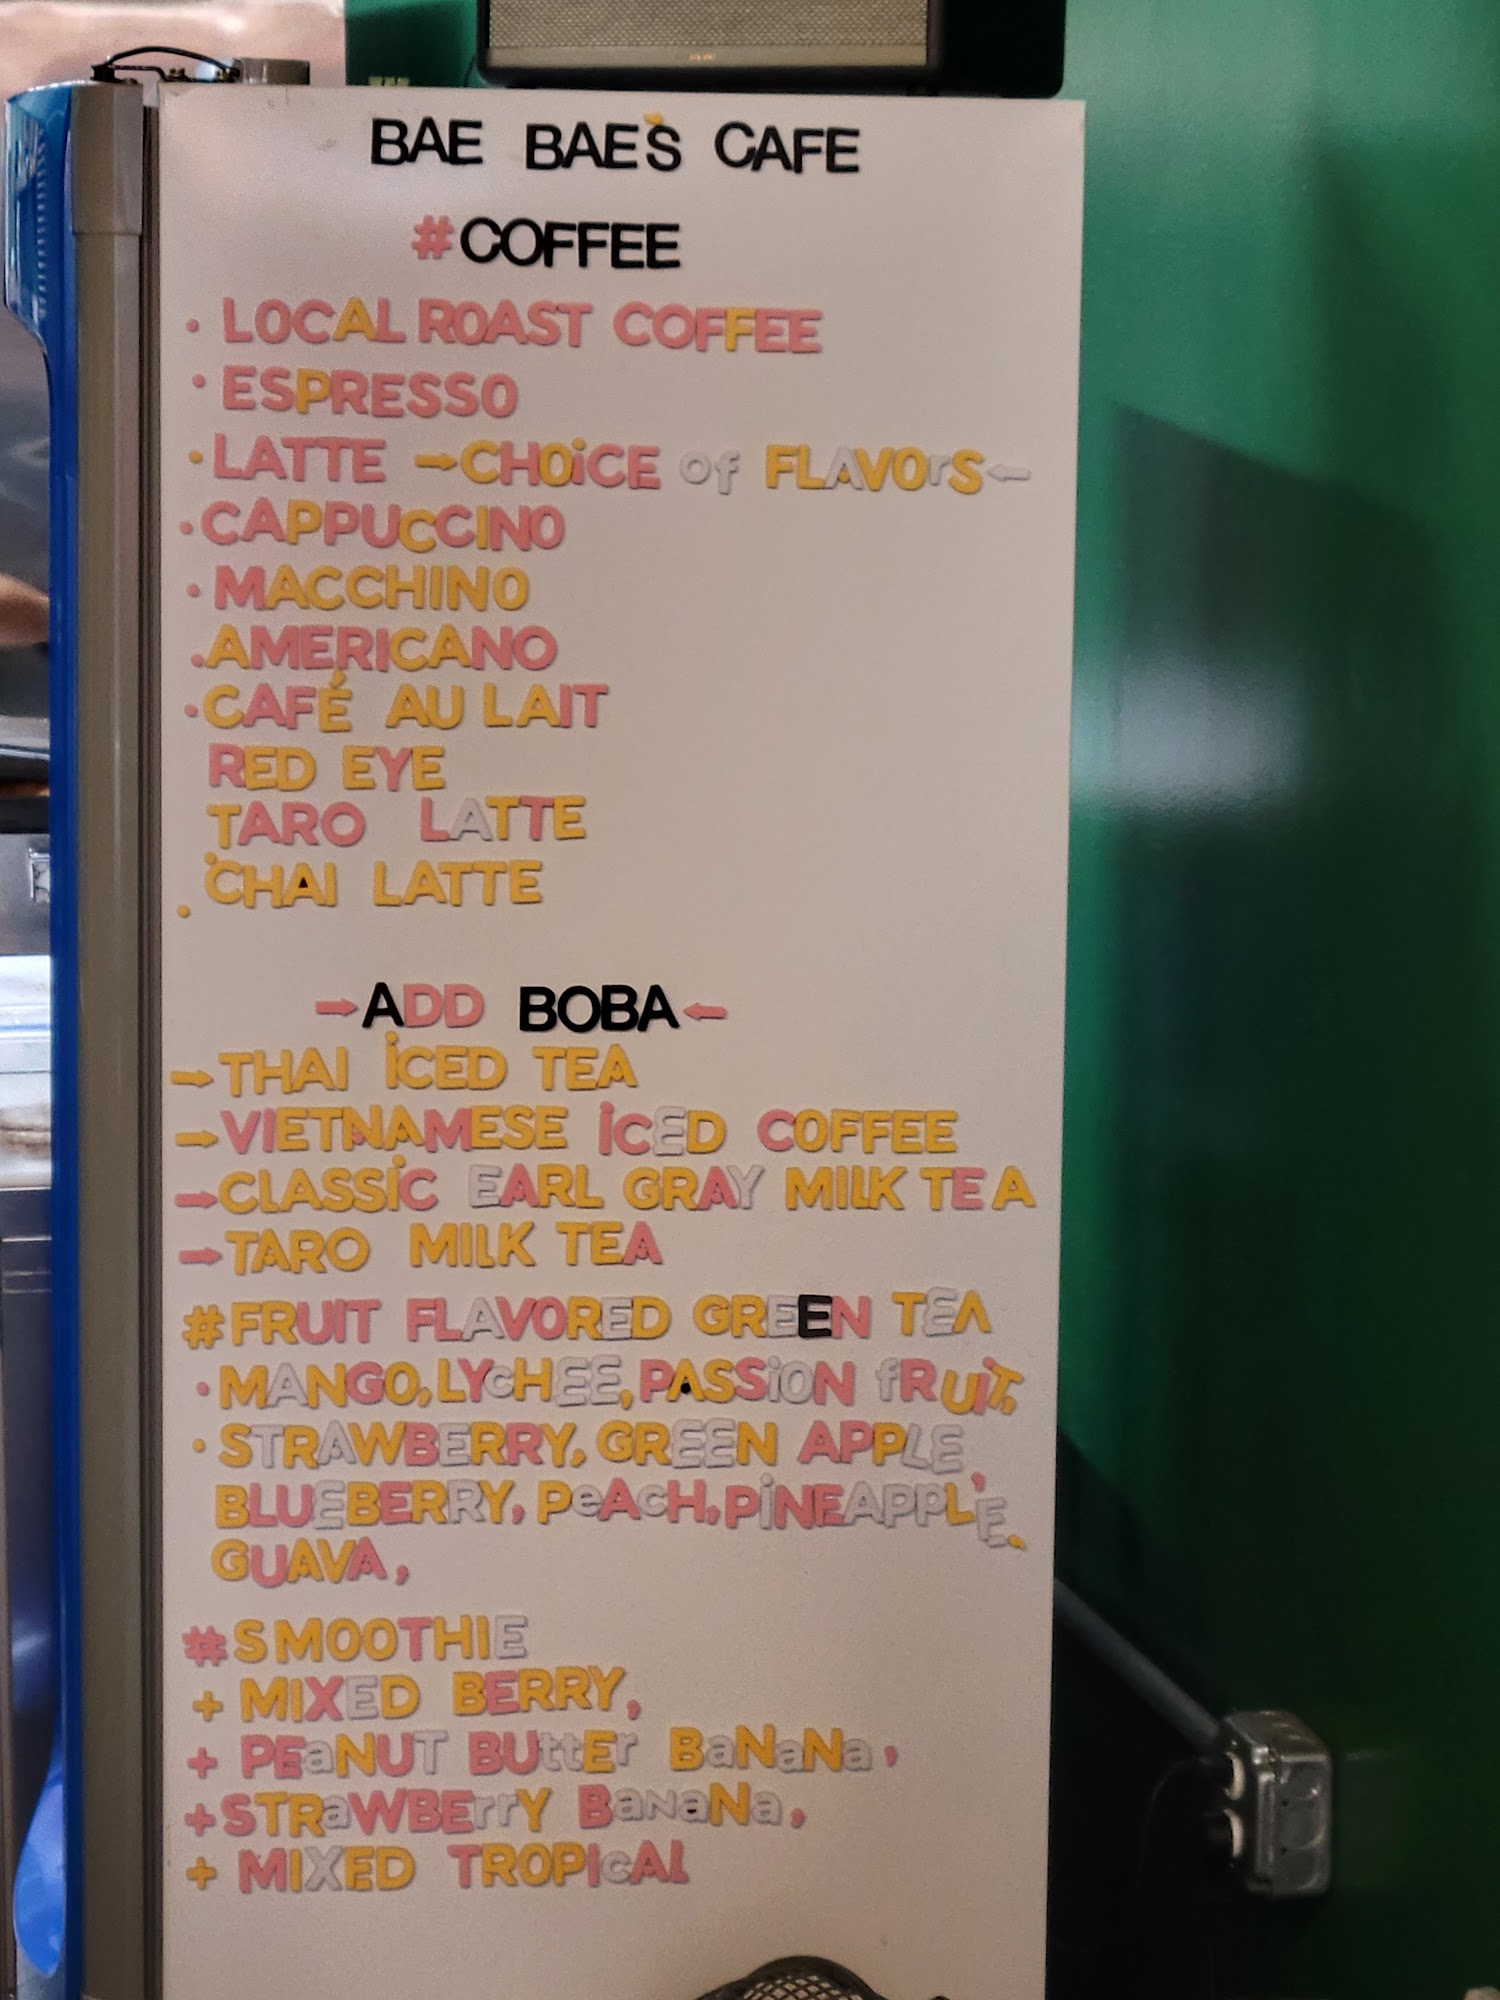 BAE BAE'S CAFE
#COFFEE
· LOCAL ROAST COFFEE
· ESPRESSO
· LATTE →CHOiCE of FLAVOrS←
· CAPPUCCINO
· MACCHINO
. AMERICANO
· CAFÉ AU LAIT
RED EYE
TARO LATTE
. CHAI LATTE
→ADD BOBA←
→THAI iCED TEA
→VIETNAMESE iCED COFFEE
→CLASSiC EARL GRAY MILK TEA
→TARO MILK TEA
#FRUIT FLAVORED GREEN TEA
· MANGO, LYcHEE, PASSiON fRUiT,
· STRAWBERRY, GREEN APPLE,
BLUEBERRY, PeAcH, PiNEAPPLE.
GUAVA,
#SMOOTHIE
+ MIXED BERRY,
+ PEaNUT BUttEr BaNaNa,
+STRaWBErrY BaNaNa,
+ MIXED TROPIcAL